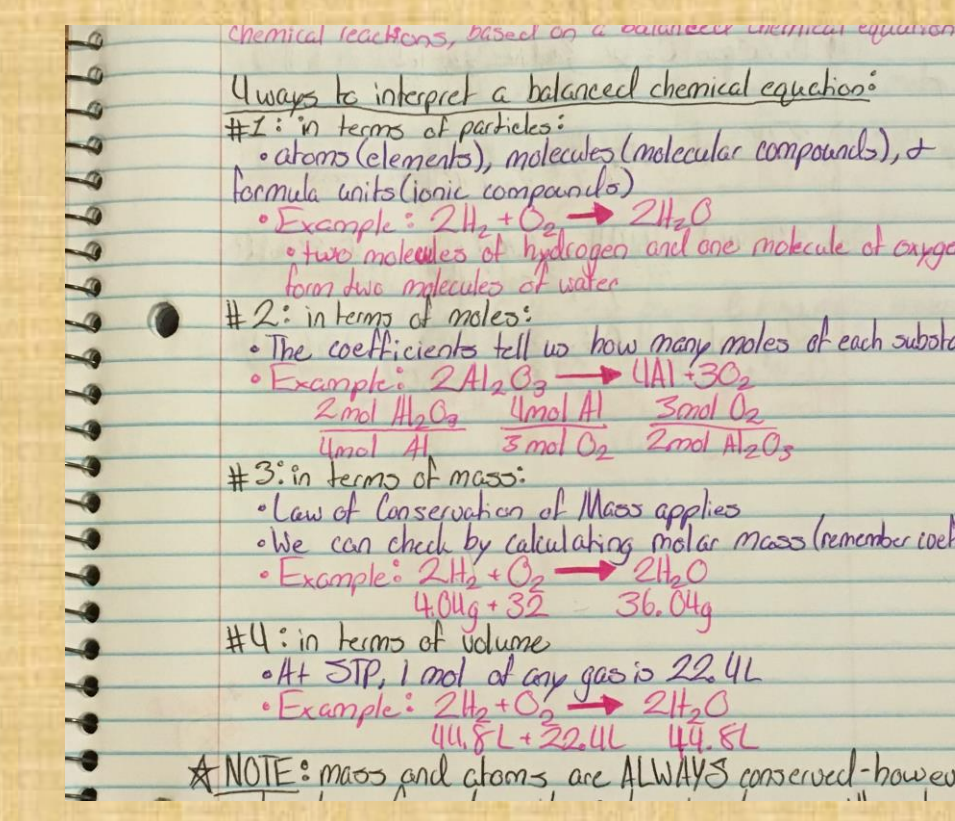 chemical reactions, based on a balanced chemical equation
4 ways to interpret a balanced chemical equation:
#1: in terms of particles:
• atoms (elements), molecules (molecular compounds), &
formula units (ionic compounds)
• Example: 2H₂ + O₂ → 2H₂O
• two molecules of hydrogen and one molecule of oxyge
form two molecules of water
#2: in terms of moles:
• The coefficients tell us how many moles of each substa
• Example: 2Al₂O₃ → 4Al + 3O₂
2mol Al₂O₃ 4mol Al 3mol O₂
4mol Al 3mol O₂ 2mol Al₂O₃
#3: in terms of mass:
• Law of Conservation of Mass applies
• We can check by calculating molar mass (remember coef
• Example: 2H₂ + O₂ → 2H₂O
4.04g + 32 36.04g
#4: in terms of volume
• At STP, 1 mol of any gas is 22.4L
• Example: 2H₂ + O₂ → 2H₂O
44.8L + 22.4L 44.8L
☆ NOTE: mass and atoms are ALWAYS conserved - howev